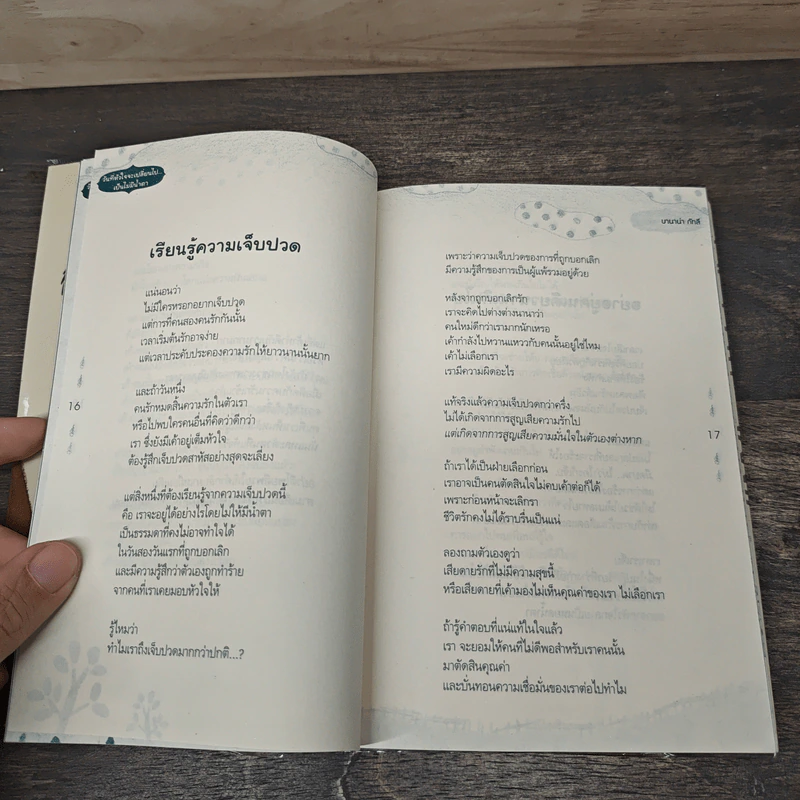 วันที่หัวใจจะเปลี่ยนไป...
เป็นไม่มีน้ำตา
เรียนรู้ความเจ็บปวด
แน่นอนว่า
ไม่มีใครหรอกอยากเจ็บปวด
แต่การที่คนสองคนรักกันนั้น
เวลาเริ่มต้นรักอาจง่าย
แต่เวลาประคับประคองความรักให้ยาวนานนั้นยาก
และถ้าวันหนึ่ง
คนรักหมดสิ้นความรักในตัวเรา
หรือไปพบใครคนอื่นที่คิดว่าดีกว่า
เรา ซึ่งยังมีเค้าอยู่เต็มหัวใจ
ต้องรู้สึกเจ็บปวดสาหัสอย่างสุดจะเลี่ยง
แต่สิ่งหนึ่งที่ต้องเรียนรู้จากความเจ็บปวดนี้
คือ เราจะอยู่ได้อย่างไรโดยไม่ให้มีน้ำตา
เป็นธรรมดาที่คงไม่อาจทำใจได้
ในวันสองวันแรกที่ถูกบอกเลิก
และมีความรู้สึกว่าตัวเองถูกทำร้าย
จากคนที่เราเคยมอบหัวใจให้
รู้ไหมว่า
ทำไมเราถึงเจ็บปวดมากกว่าปกติ...?
16
นานาน่า ภักดี
เพราะว่าความเจ็บปวดของการที่ถูกบอกเลิก
มีความรู้สึกของการเป็นผู้แพ้รวมอยู่ด้วย
หลังจากถูกบอกเลิกรัก
เราจะคิดไปต่างต่างนานาว่า
คนใหม่ดีกว่าเรามากนักเหรอ
เค้ากำลังไปหวานแหววกับคนนั้นอยู่ใช่ไหม
เค้าไม่เลือกเรา
เรามีความผิดอะไร
แท้จริงแล้วความเจ็บปวดกว่าครึ่ง
ไม่ได้เกิดจากการสูญเสียความรักไป
แต่เกิดจากการสูญเสียความมั่นใจในตัวเองต่างหาก
ถ้าเราได้เป็นฝ่ายเลือกก่อน
เราอาจเป็นคนตัดสินใจไม่คบเค้าต่อก็ได้
เพราะก่อนหน้าจะเลิกรา
ชีวิตรักคงไม่ได้ราบรื่นเป็นแน่
ลองถามตัวเองดูว่า
เสียดายรักที่ไม่มีความสุขนี้
หรือเสียดายที่เค้ามองไม่เห็นคุณค่าของเรา ไม่เลือกเรา
ถ้ารู้คำตอบที่แน่แท้ในใจแล้ว
เรา จะยอมให้คนที่ไม่ดีพอสำหรับเราคนนั้น
มาตัดสินคุณค่า
และบั่นทอนความเชื่อมั่นของเราต่อไปทำไม
17